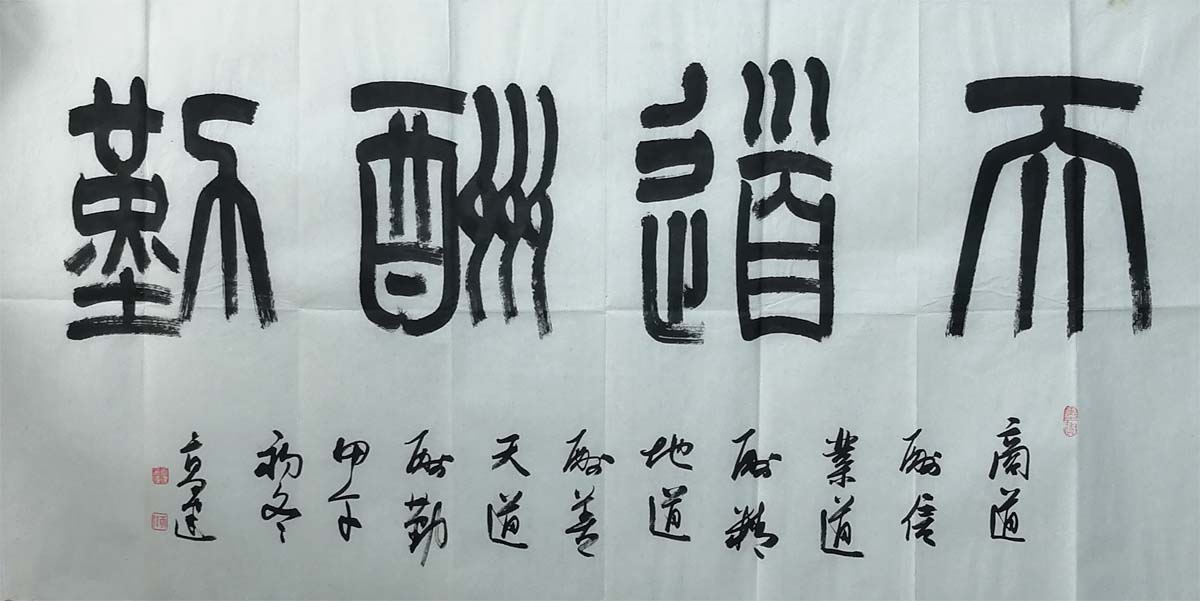 天道酬勤
商道
酬信
業道
酬精
地道
酬善
天道
酬勤
甲午
初冬